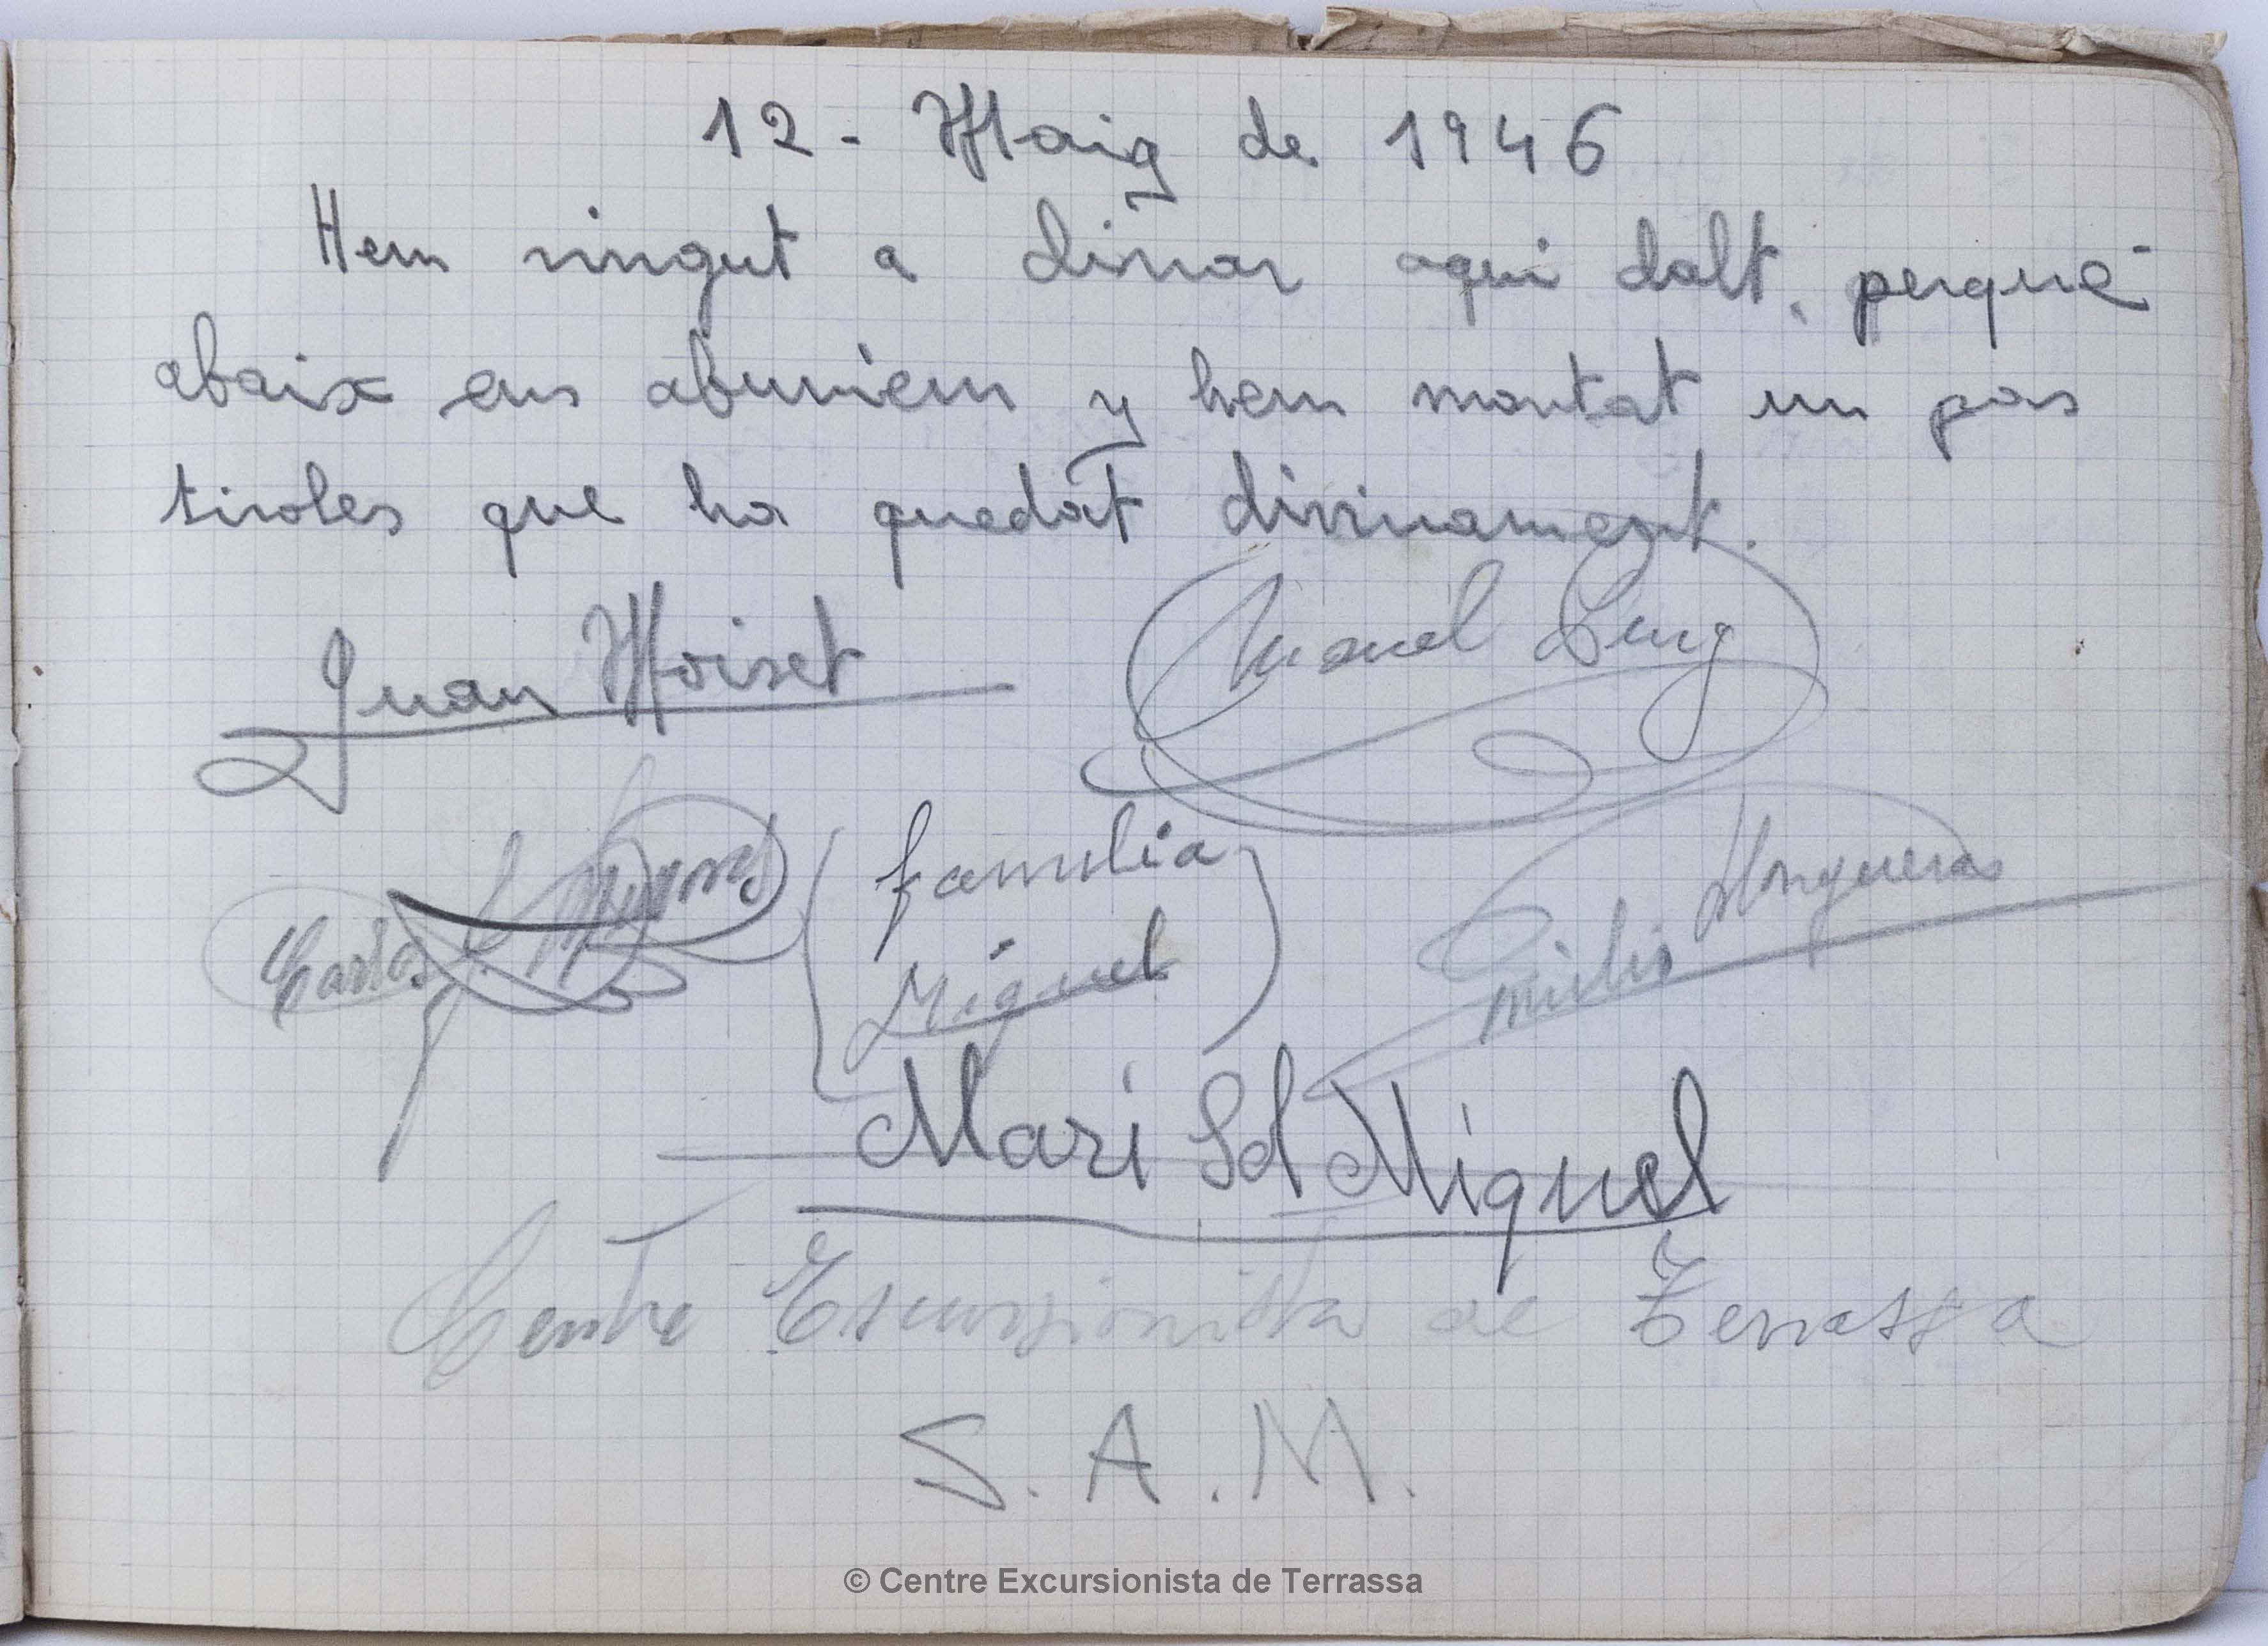 12 - Maig de 1946
Hem vingut a dinar aqui dalt, perqué
abaix ens aburriem y hem montat un pas
tiroles que ha quedat divinament.
Juan Moiset
Manuel Puig
Carlos
(familia
Miquel)
Emilio Mongueras
Mari Sol Miquel
Centre Escursionista de Terrassa
S. A. M.
© Centre Excursionista de Terrassa